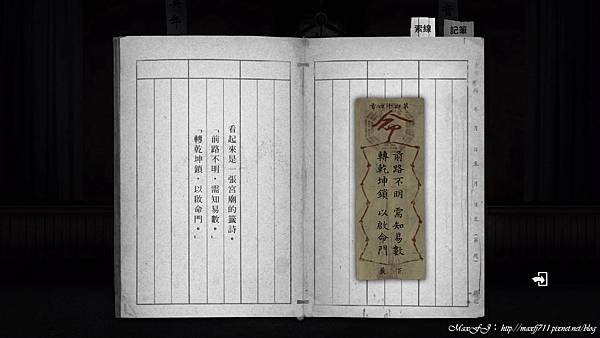 索線
記筆
看起來是一張宮廟的籤詩。
「前路不明，需知易數，
「轉乾坤鎖，以啟命門。」
命
前路不明 需知易數
轉乾坤鎖 以啟命門
下
MaxFJ：http://maxfj711.pixnet.net/blog